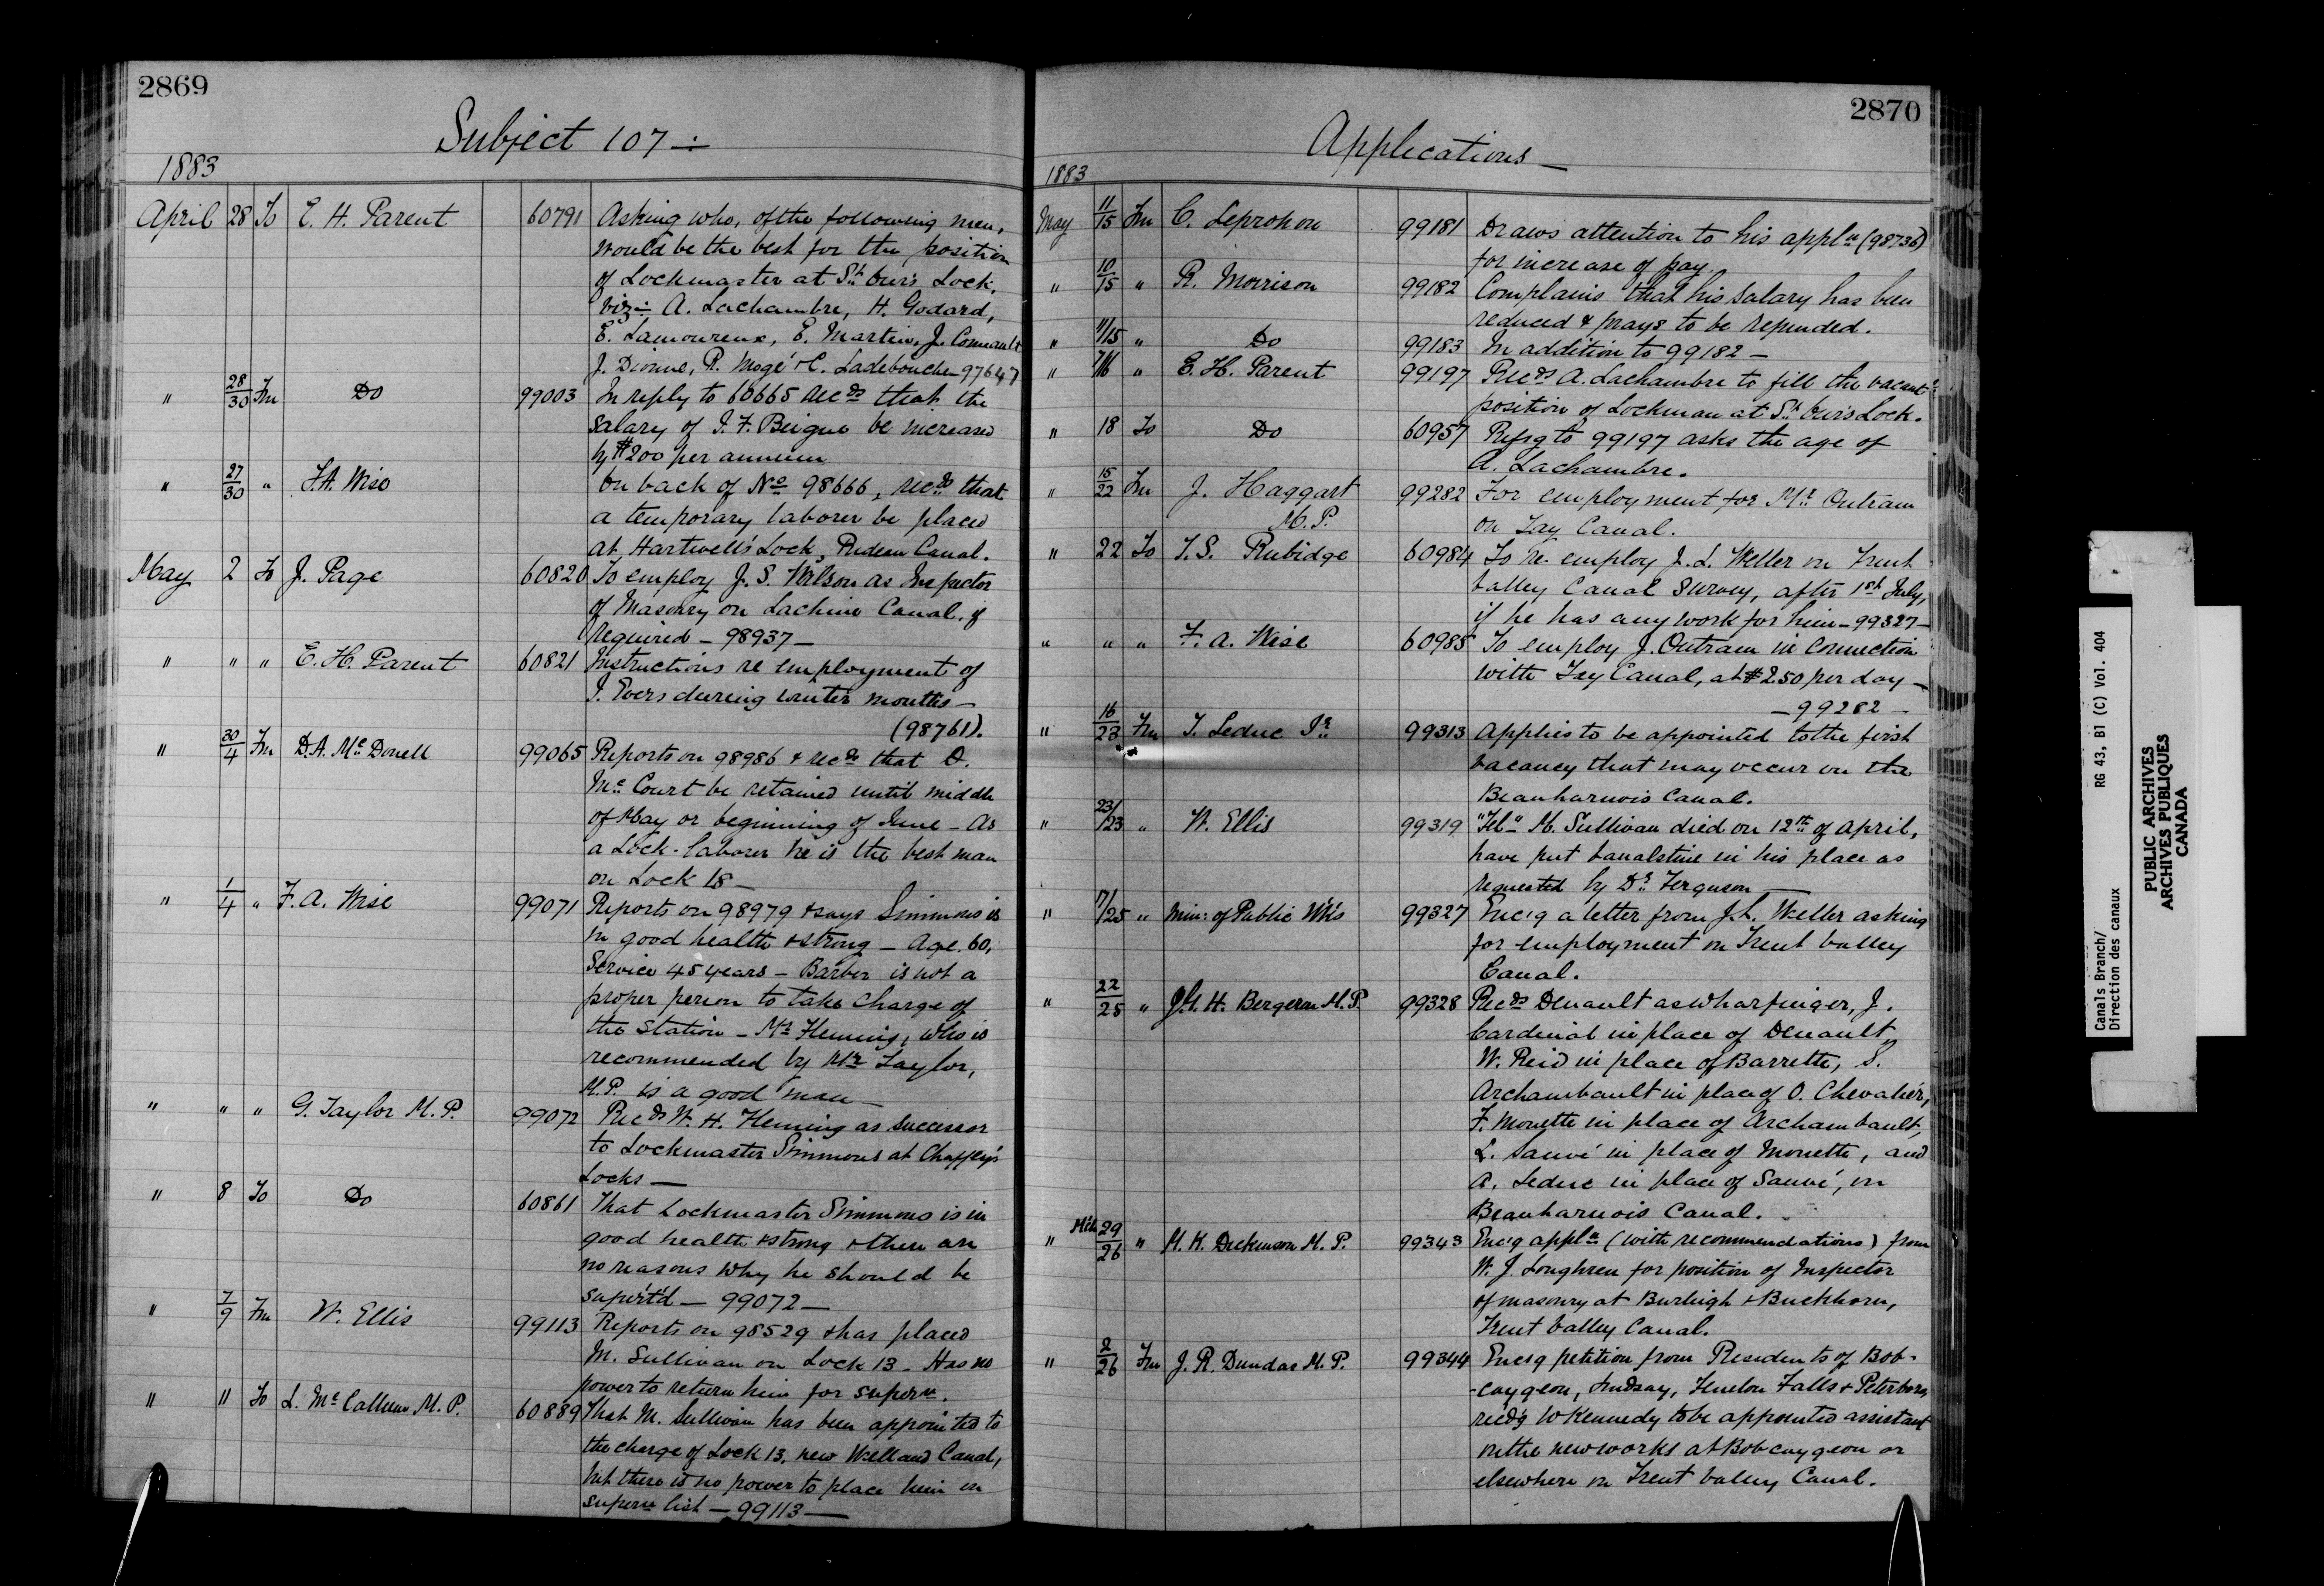 2869
Subject 107 ÷
1883
April 28 To E. H. Parent 60791 Asking who, of the following men,
would be the best for the position
of Lockmaster at St. Ours Lock,
viz÷ A. Lachambre, H. Godard,
E. Lamoureux, E. Martin, J. Comeault
J. Dionne, P. Mogé & C. Ladebouche - 97647
" 28/30 Fm Do 99003 In reply to 60665 recds that the
salary of J. F. Beique be increased
by $200 per annum
" 27/30 " F.A. Wise On back of No 98666, recds that
a temporary laborer be placed
at Hartwell's Lock, Rideau Canal.
May 2 To J. Page 60820 To employ J. S. Wilson as Inspector
of Masonry on Lachine Canal, if
required - 98937 -
" " " E. H. Parent 60821 Instructions re employment of
J. Evers during winter months -
(98761).
" 30/4 Fm D.A. McDonell 99065 Reports on 98986 & recds that D.
McCourt be retained until middle
of May or beginning of June - As
a Lock-laborer he is the best man
on Lock 18 -
" 1/4 " F. A. Wise 99071 Reports on 98979 & says Simmons is
in good health & strong - Age 60,
Service 45 years - Barber is not a
proper person to take charge of
the station - Mr Fleming, who is
recommended by Mr Taylor,
M.P. is a good man -
" " " G. Taylor M.P. 99072 Recds W. H. Fleming as successor
to Lockmaster Simmons at Chaffey's
Locks -
" 8 To Do 60861 That Lockmaster Simmons is in
good health & strong & there are
no reasons why he should be
super'td - 99072 -
" 7/9 Fm W. Ellis 99113 Reports on 98529 & has placed
M. Sullivan on Lock 13 - Has no
power to return him for supern.
" 11 To L. McCallum M.P. 60889 That M. Sullivan has been appointed to
the charge of Lock 13, new Welland Canal,
but there is no power to place him on
supern list - 99113 -
2870
Applications -
1883
May 11/15 Fm C. Leprohon 99181 Draws attention to his appln (98736)
for increase of pay.
" 10/15 " R. Morrison 99182 Complains that his salary has been
reduced & prays to be refunded.
" 11/15 " Do 99183 In addition to 99182 -
" 7/16 " E. H. Parent 99197 Recds A. Lachambre to fill the vacant
position of Lockman at St. Ours Lock.
" 18 To Do 60957 Refsg to 99197 asks the age of
A. Lachambre.
" 15/22 Fm J. Haggart 99282 For employment for Mr Outram
M.P. on Tay Canal.
" 22 To T.S. Rubidge 60984 To re-employ J. L. Weller on Trent
Valley Canal Survey, after 1st July,
if he has any work for him - 99327 -
" " " F. A. Wise 60985 To employ J. Outram in Connection
with Tay Canal, at $2.50 per day -
- 99282 -
" 16/23 Fm T. Leduc Jr 99313 Applies to be appointed to the first
vacancy that may occur on the
Beauharnois Canal.
" 23/23 " W. Ellis 99319 "Tel" M. Sullivan died on 12th of April,
have put Vanalstine in his place as
requested by Dr Ferguson -
" 17/25 " Min: of Public Wks 99327 Enc'g a letter from J.L. Weller asking
for employment on Trent Valley
Canal.
" 22/25 " J.G. H. Bergeron M.P. 99328 Recds Denault as wharfinger, J.
Cardinal in place of Denault,
W. Reid in place of Barrette, S.
Archambault in place of O. Chevalier,
F. Monette in place of Archambault,
L. Sauvé in place of Monette, and
A. Leduc in place of Sauvé, on
Beauharnois Canal.
" Mch 29/26 " M. K. Dickinson M.P. 99343 Enc'g appln (with recommendations) from
W. J. Loughren for position of Inspector
of masonry at Burleigh & Buckhorn,
Trent Valley Canal.
" 2/26 Fm J. R. Dundas M.P. 99344 Encsg petition from Residents of Bob-
-caygeon, Lindsay, Fenelon Falls & Peterboro,
recd'g W Kennedy to be appointed assistant
on the new works at Bobcaygeon or
elsewhere on Trent Valley Canal.
Canals Branch/ RG 43, B1 (C) Vol. 404
Direction des canaux
PUBLIC ARCHIVES
ARCHIVES PUBLIQUES
CANADA